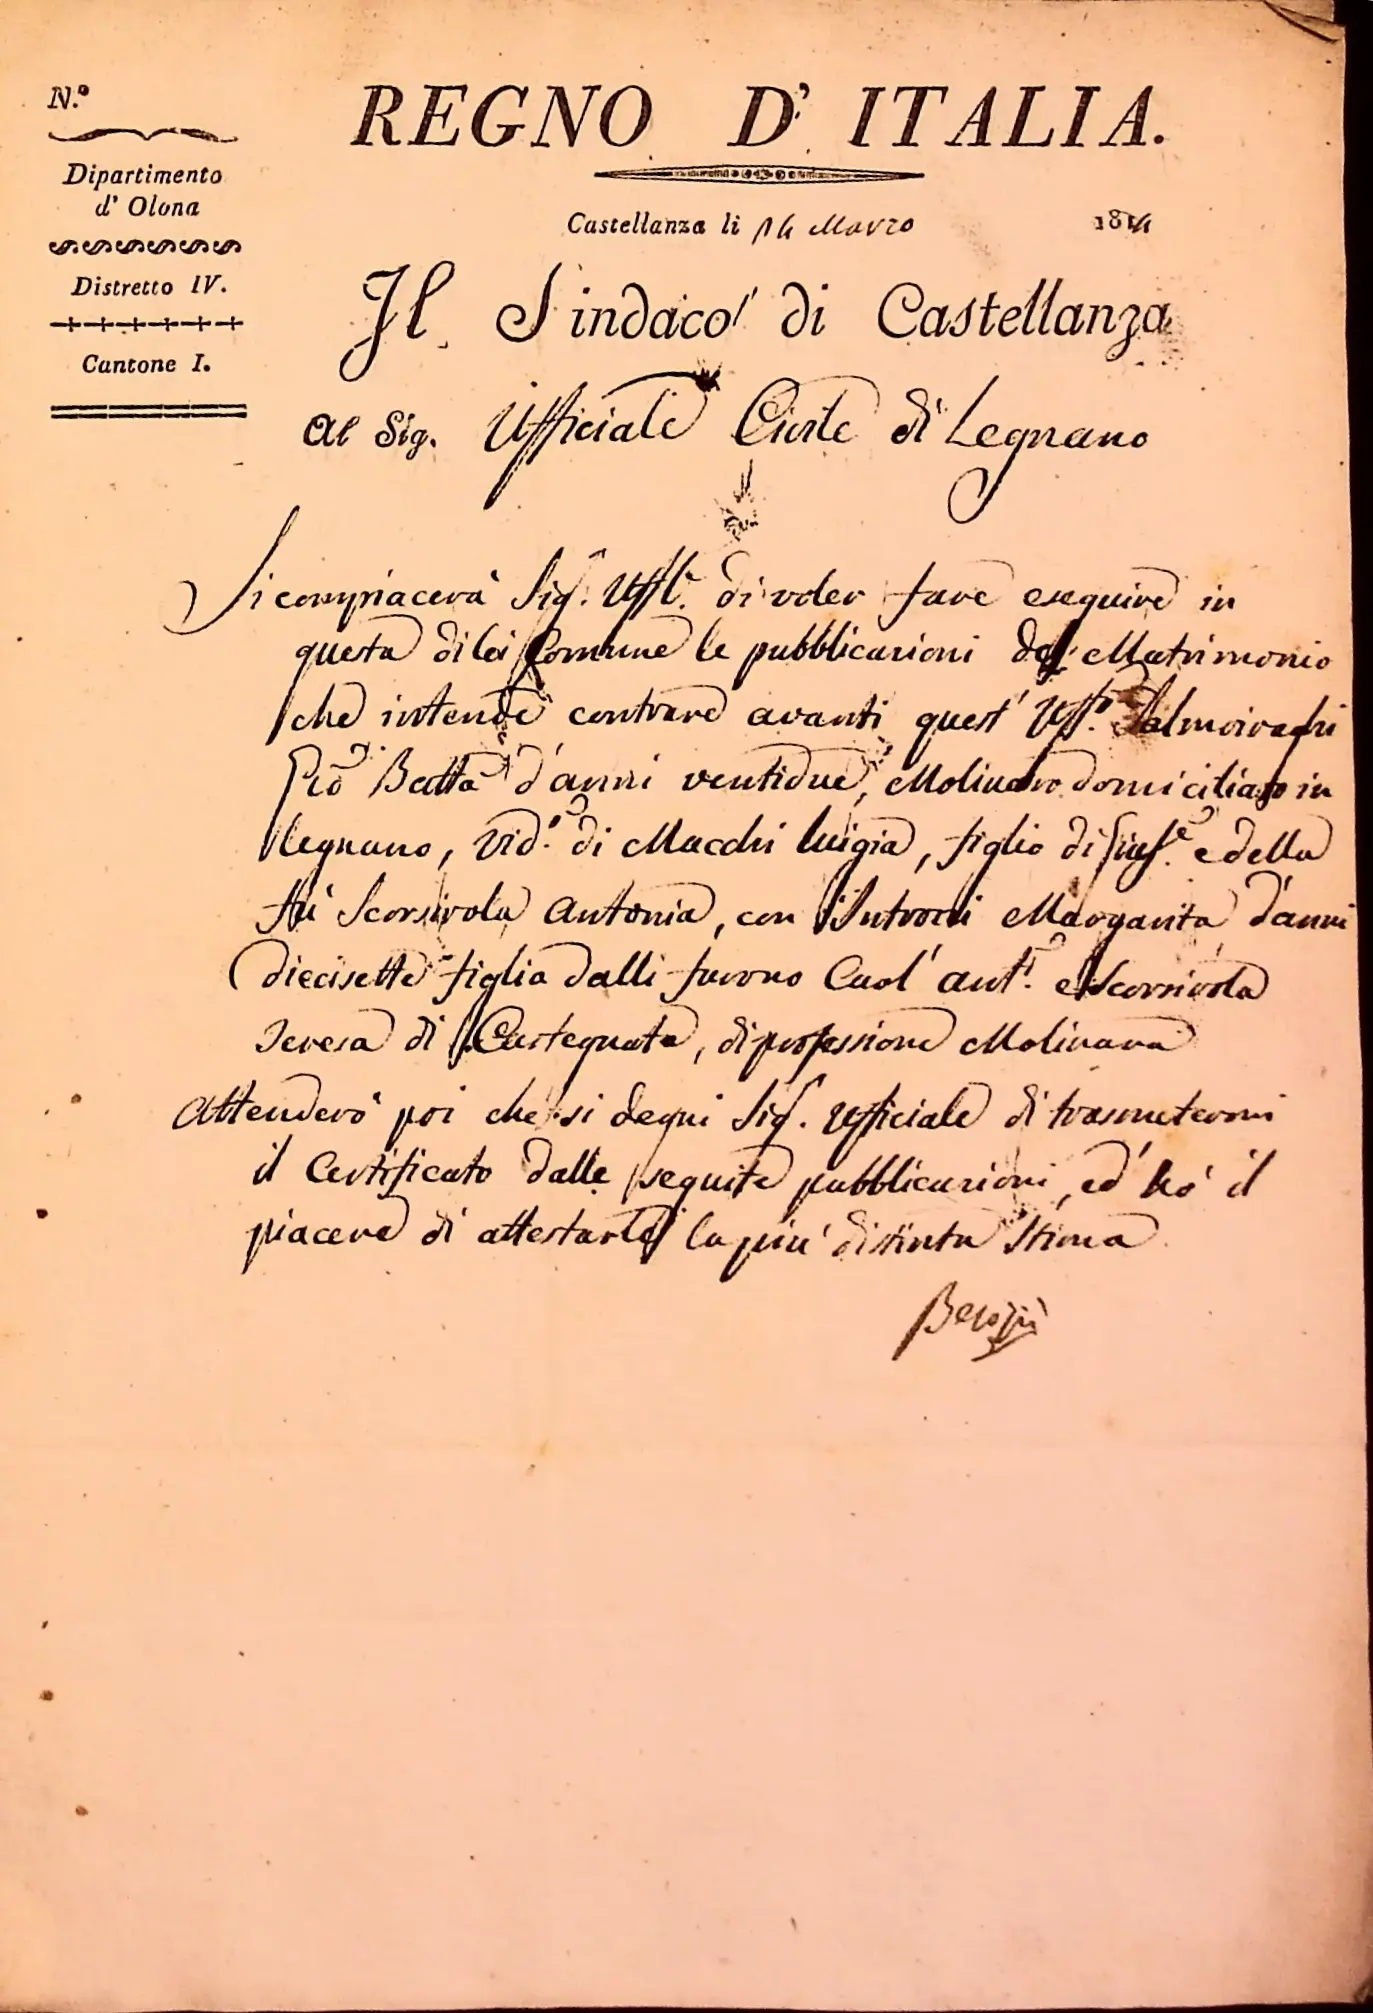 N.º
REGNO D' ITALIA.
Dipartimento
d' Olona
Castellanza li 14 Marzo 1814
Distretto IV.
Il Sindaco di Castellanza
Cantone I.
Al Sig. Ufficiale Civile di Legnano
Si compiacerà Sig. Uffl. di voler fare eseguire in
questa di lei Comune le pubblicazioni del Matrimonio
che intende contrare avanti quest' Uffo. Salmoiraghi
Gio Batta d'anni ventidue, Molinaro domiciliato in
Legnano, Vido. di Macchi Luigia, figlio di Giuse. e della
fu Scorsivola Antonia, con Introzzi Margarita d'anni
diecisette figlia dalli furono Carl' Ant. e Scorsivola
Teresa di Castegnate, di professione Molinara
Attenderò poi che si degni Sig. Ufficiale di trasmetermi
il Certificato dalle seguite pubblicazioni, ed hò il
piacere di attestarle la più distinta Stima